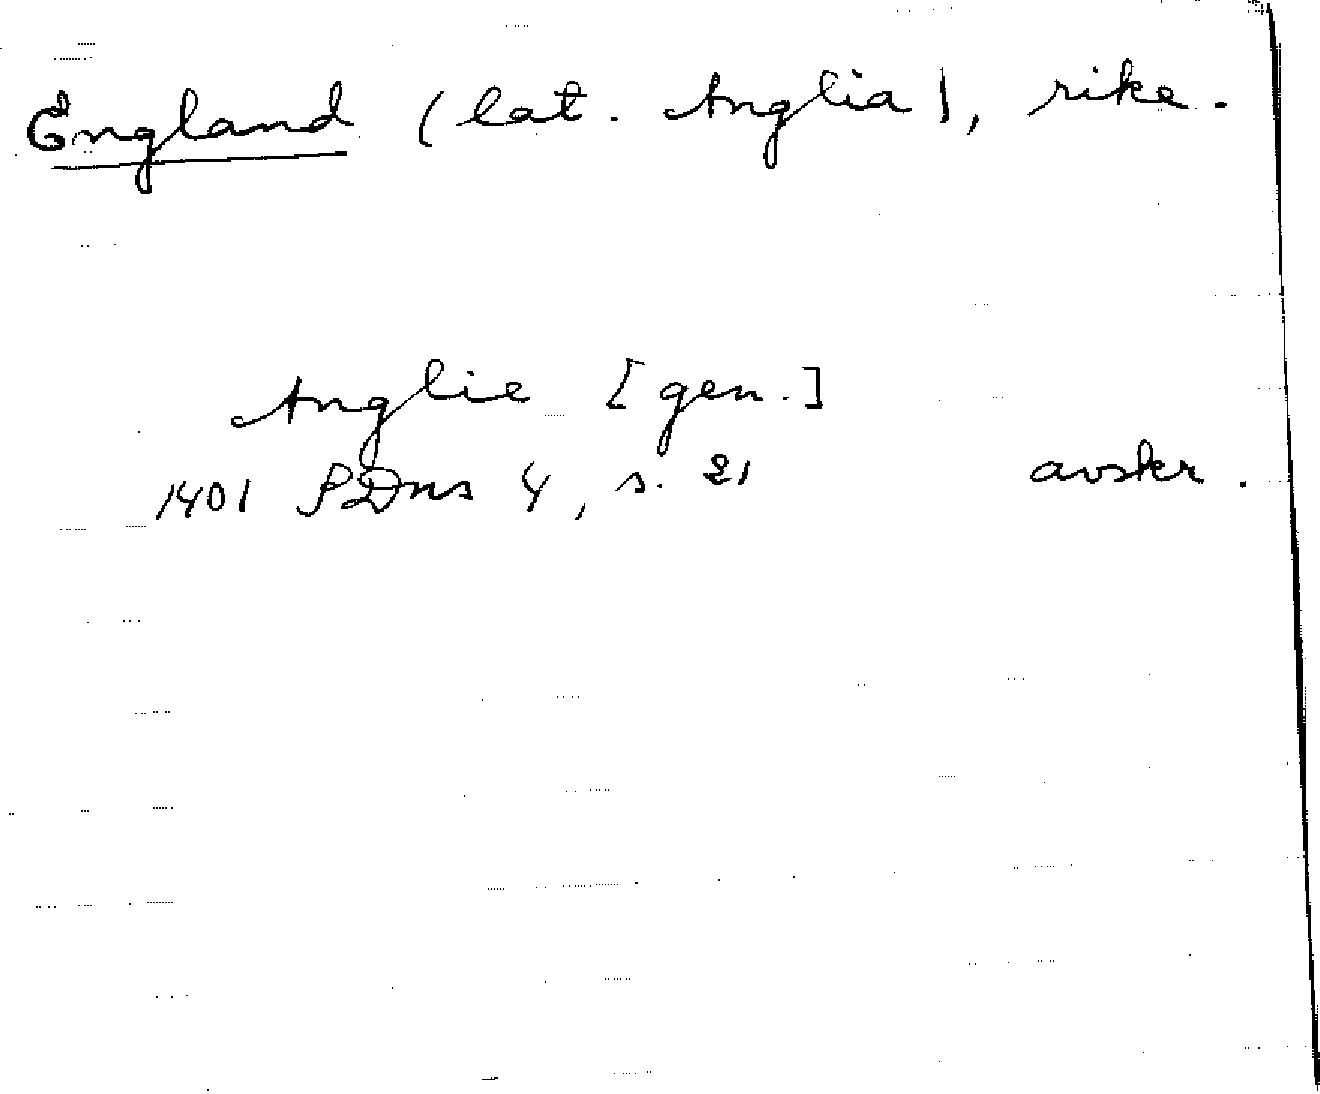 England (lat. Anglia), rike.
Anglie [gen.]
1401 SDns 4, s. 21 avskr.